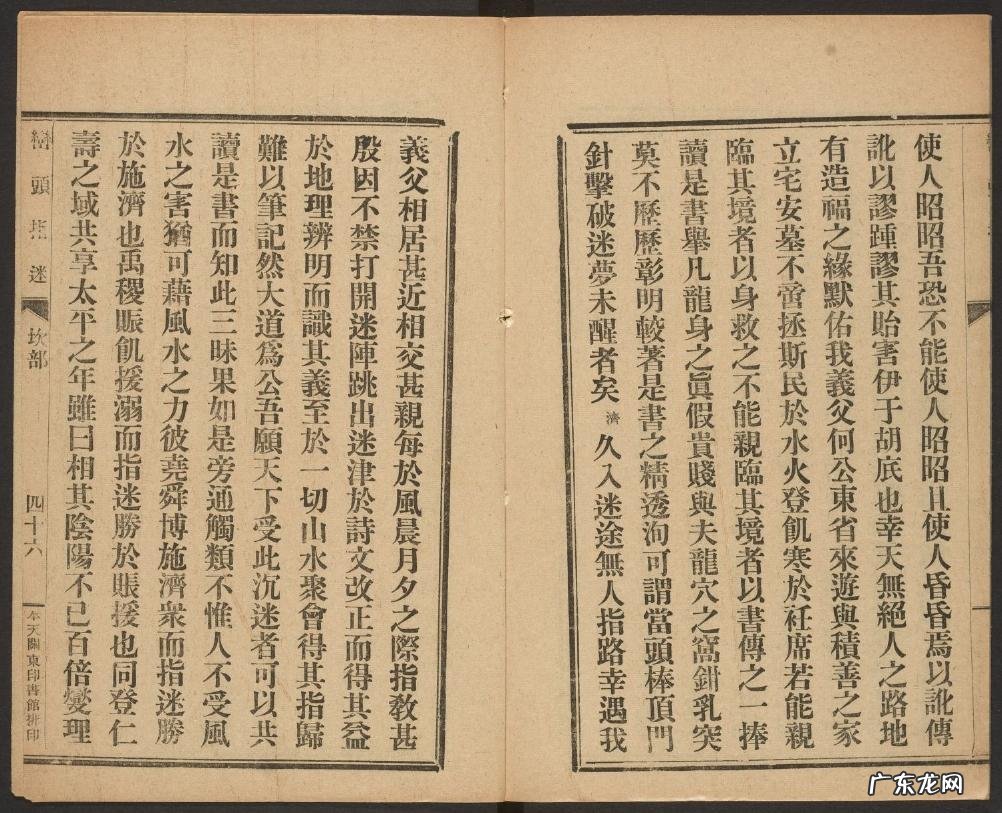 使人昭昭吾恐不能使人昭昭且使人昏昏焉以訛傳
訛以謬踵謬其貽害伊于胡底也幸天無絕人之路地
有造福之緣默佑我義父何公東省來遊與積善之家
立宅安墓不啻拯斯民於水火登飢寒於衽席若能親
臨其境者以身救之不能親臨其境者以書傳之一捧
讀是書舉凡龍身之眞假貴賤與夫龍穴之窩鉗乳突
莫不歷歷彰明較著是書之精透洵可謂當頭棒頂門
針擊破迷夢未醒者矣 濟 久入迷途無人指路幸遇我
義父相居甚近相交甚親每於風晨月夕之際指敎甚
殷因不禁打開迷陣跳出迷津於詩文改正而得其益
於地理辨明而識其義至於一切山水聚會得其指歸
難以筆記然大道爲公吾願天下受此沉迷者可以共
讀是書而知此三昧果如是旁通觸類不惟人不受風
水之害猶可藉風水之力彼堯舜博施濟衆而指迷勝
於施濟也禹稷賑飢援溺而指迷勝於賬援也同登仁
壽之域共享太平之年雖曰相其陰陽不已百倍燮理
巒頭指迷 坎部 四十六 奉天關東印書館排印
广东龙网